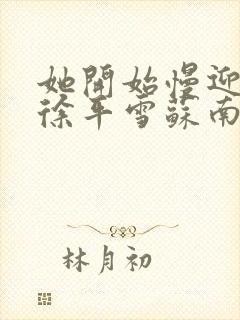 她開始慢迎
徐平雪蘇南
林月初